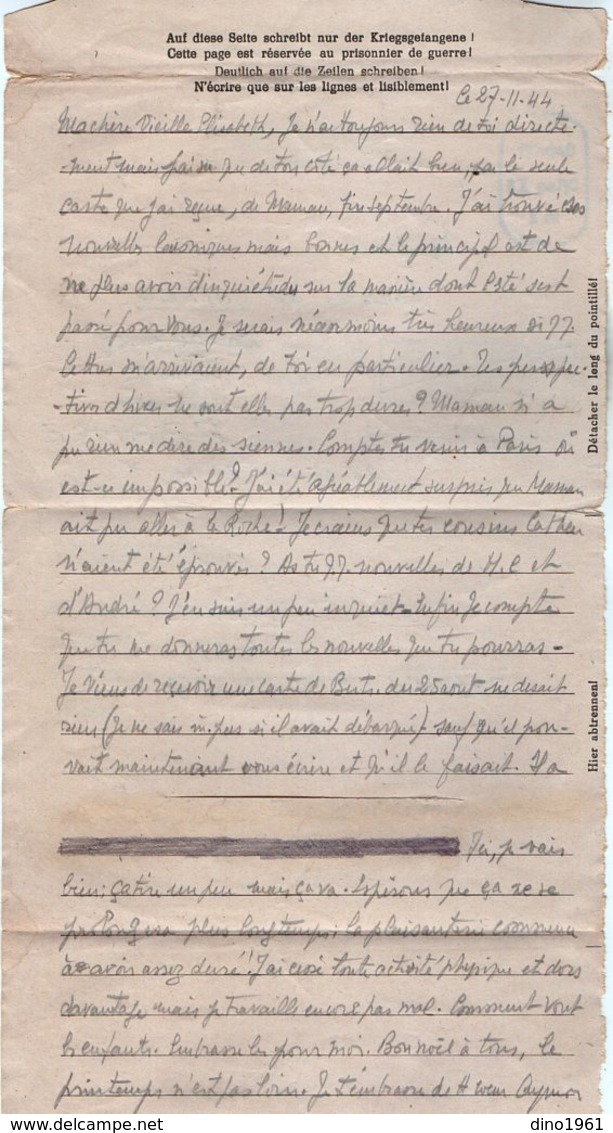 Auf diese Seite schreibt nur der Kriegsgefangene!
Cette page est réservée au prisonnier de guerre!
Deutlich auf die Zeilen schreiben!
N'écrire que sur les lignes et lisiblement!
Le 27-11-44
Ma chère Vieille Elisabeth, Je n'ai toujours rien de toi directe-
ment mais j'ai su que de ton côté ça allait bien, par la seule
carte que j'ai reçue, de Maman, fin septembre. J'ai trouvé ces
nouvelles laconiques mais bonnes et le principal est de
ne plus avoir d'inquiétudes sur la manière dont l'été s'est
passé pour vous. Je serais néanmoins très heureux si qq.
lettres m'arrivaient, de toi en particulier. Tes perspec-
tives d'hiver ne sont elles pas trop dures? Maman n'a
pu rien me dire des siennes. Comptes tu venir à Paris ou
est-ce impossible? J'ai été agréablement surpris que Maman
ait pu aller à la Roche! Je crains que tes cousins
n'aient été éprouvés? As tu qq. nouvelles de H.C et
d'André? J'en suis un peu inquiet. Enfin je compte
que tu me donneras toutes les nouvelles que tu pourras-
Je viens de recevoir une carte de du 25 aout ne disait
rien (je ne sais m. pas si il avait débarqué) sauf qu'il pou-
vait maintenant vous écrire et qu'il le faisait. Il a
Ici, je vais
bien: ça tire un peu mais ça va. Espérons que ça ne se
prolongera plus longtemps: la plaisanterie commence
à avoir assez duré! J'ai cessé toute activité physique et dors
davantage mais je travaille encore pas mal. Comment vont
les enfants. Embrasse les pour moi. Bon noël à tous, le
printemps n'est pas loin. Je t'embrasse de tt coeur
Détacher le long du pointillé!
Hier abtrennen!
dino1961